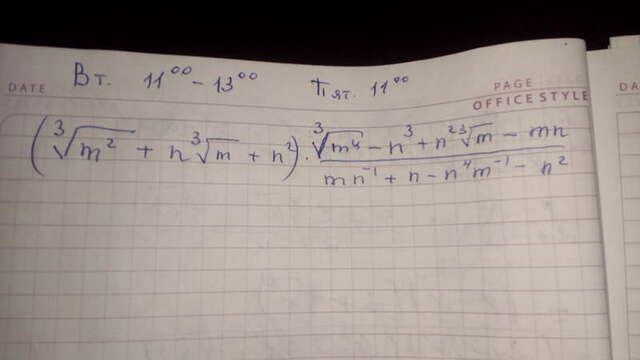 DATE Вт. 11⁰⁰ - 13⁰⁰ Пят. 11⁰⁰ PAGE
OFFICE STYLE
(∛m² + n∛m + n²) · (∛m⁴ - n³ + n²∛m - mn) / (mn⁻¹ + n - n⁴m⁻¹ - n²)
DA